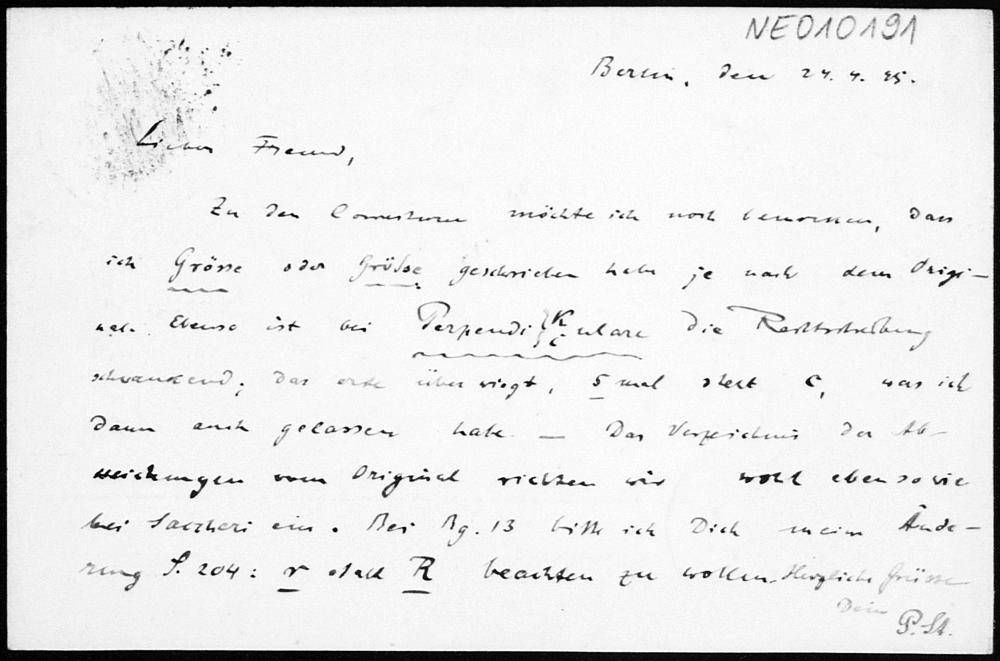 NE010191
Berlin, den 24.4.95.
Lieber Freund,
Zu den Correcturen möchte ich noch bemerken, dass
ich Grösse oder Größe geschrieben habe je nach dem Origi-
nal. Ebenso ist bei Perpendi{k/c}ulare die Rechtschreibung
schwankend; das erste überwiegt, 5 mal steht c, was ich
dann auch gelassen habe. — Das Verzeichnis der Ab-
weichungen vom Original richten wir wohl ebenso wie
bei Saccheri ein. Bei Bg. 13 bitte ich Dich meine Ände-
rung S. 204: r statt R beachten zu wollen. Herzliche Grüsse
Dein
P. St.